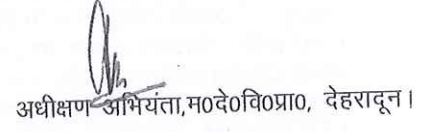 अधीक्षण अभियंता,म0दे0वि0प्रा0, देहरादून।